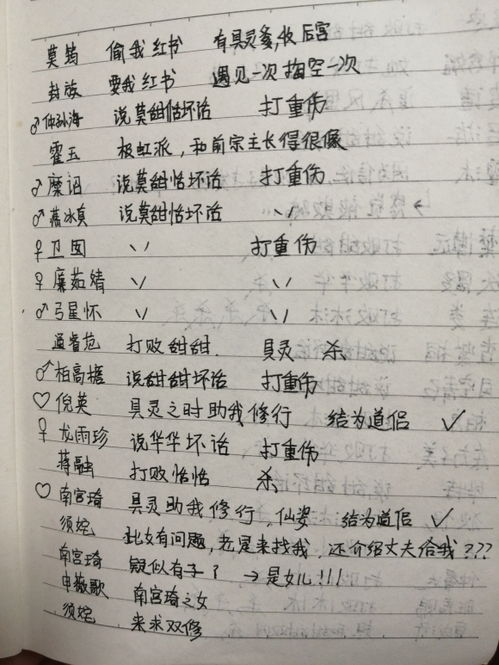 莫筠 偷我红书 有具灵多,收后宫
封族 要我红书 遇见一次掏空一次
♂仲孙海 说莫甜恬坏话 打重伤
霍玉 极虹派,和前宗主长得很像
♂糜诏 说莫甜恬坏话 打重伤
♂燕冰真 说莫甜恬坏话 \/
♀卫囡 \/ 打重伤
♀廉茹婧 \/ \/
♂弓星怀 \/ \/
通睿范 打败甜甜. 具灵 杀
♂柏高樯 说甜甜坏话 打重伤
♡倪英 具灵之时助我修行 结为道侣 ✓
♀龙雨珍 说华华坏话 打重伤
蒋融 打败恬恬 杀
♡南宫琦 具灵助我修行,仙姿 结为道侣 ✓
须婉 此女有问题,老是来找我,还介绍丈夫给我???
南宫琦 疑似有子? →是女儿!!!
申敬歌 南宫琦之女
须婉 来求双修